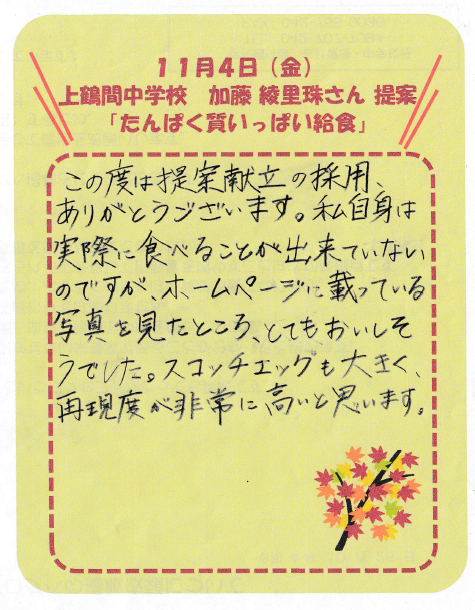 11月4日（金）
上鶴間中学校　加藤 綾里珠さん 提案
「たんぱく質いっぱい給食」
この度は提案献立の採用、
ありがとうございます。私自身は
実際に食べることが出来ていない
のですが、ホームページに載っている
写真を見たところ、とてもおいしそ
うでした。スコッチエッグも大きく、
再現度が非常に高いと思います。